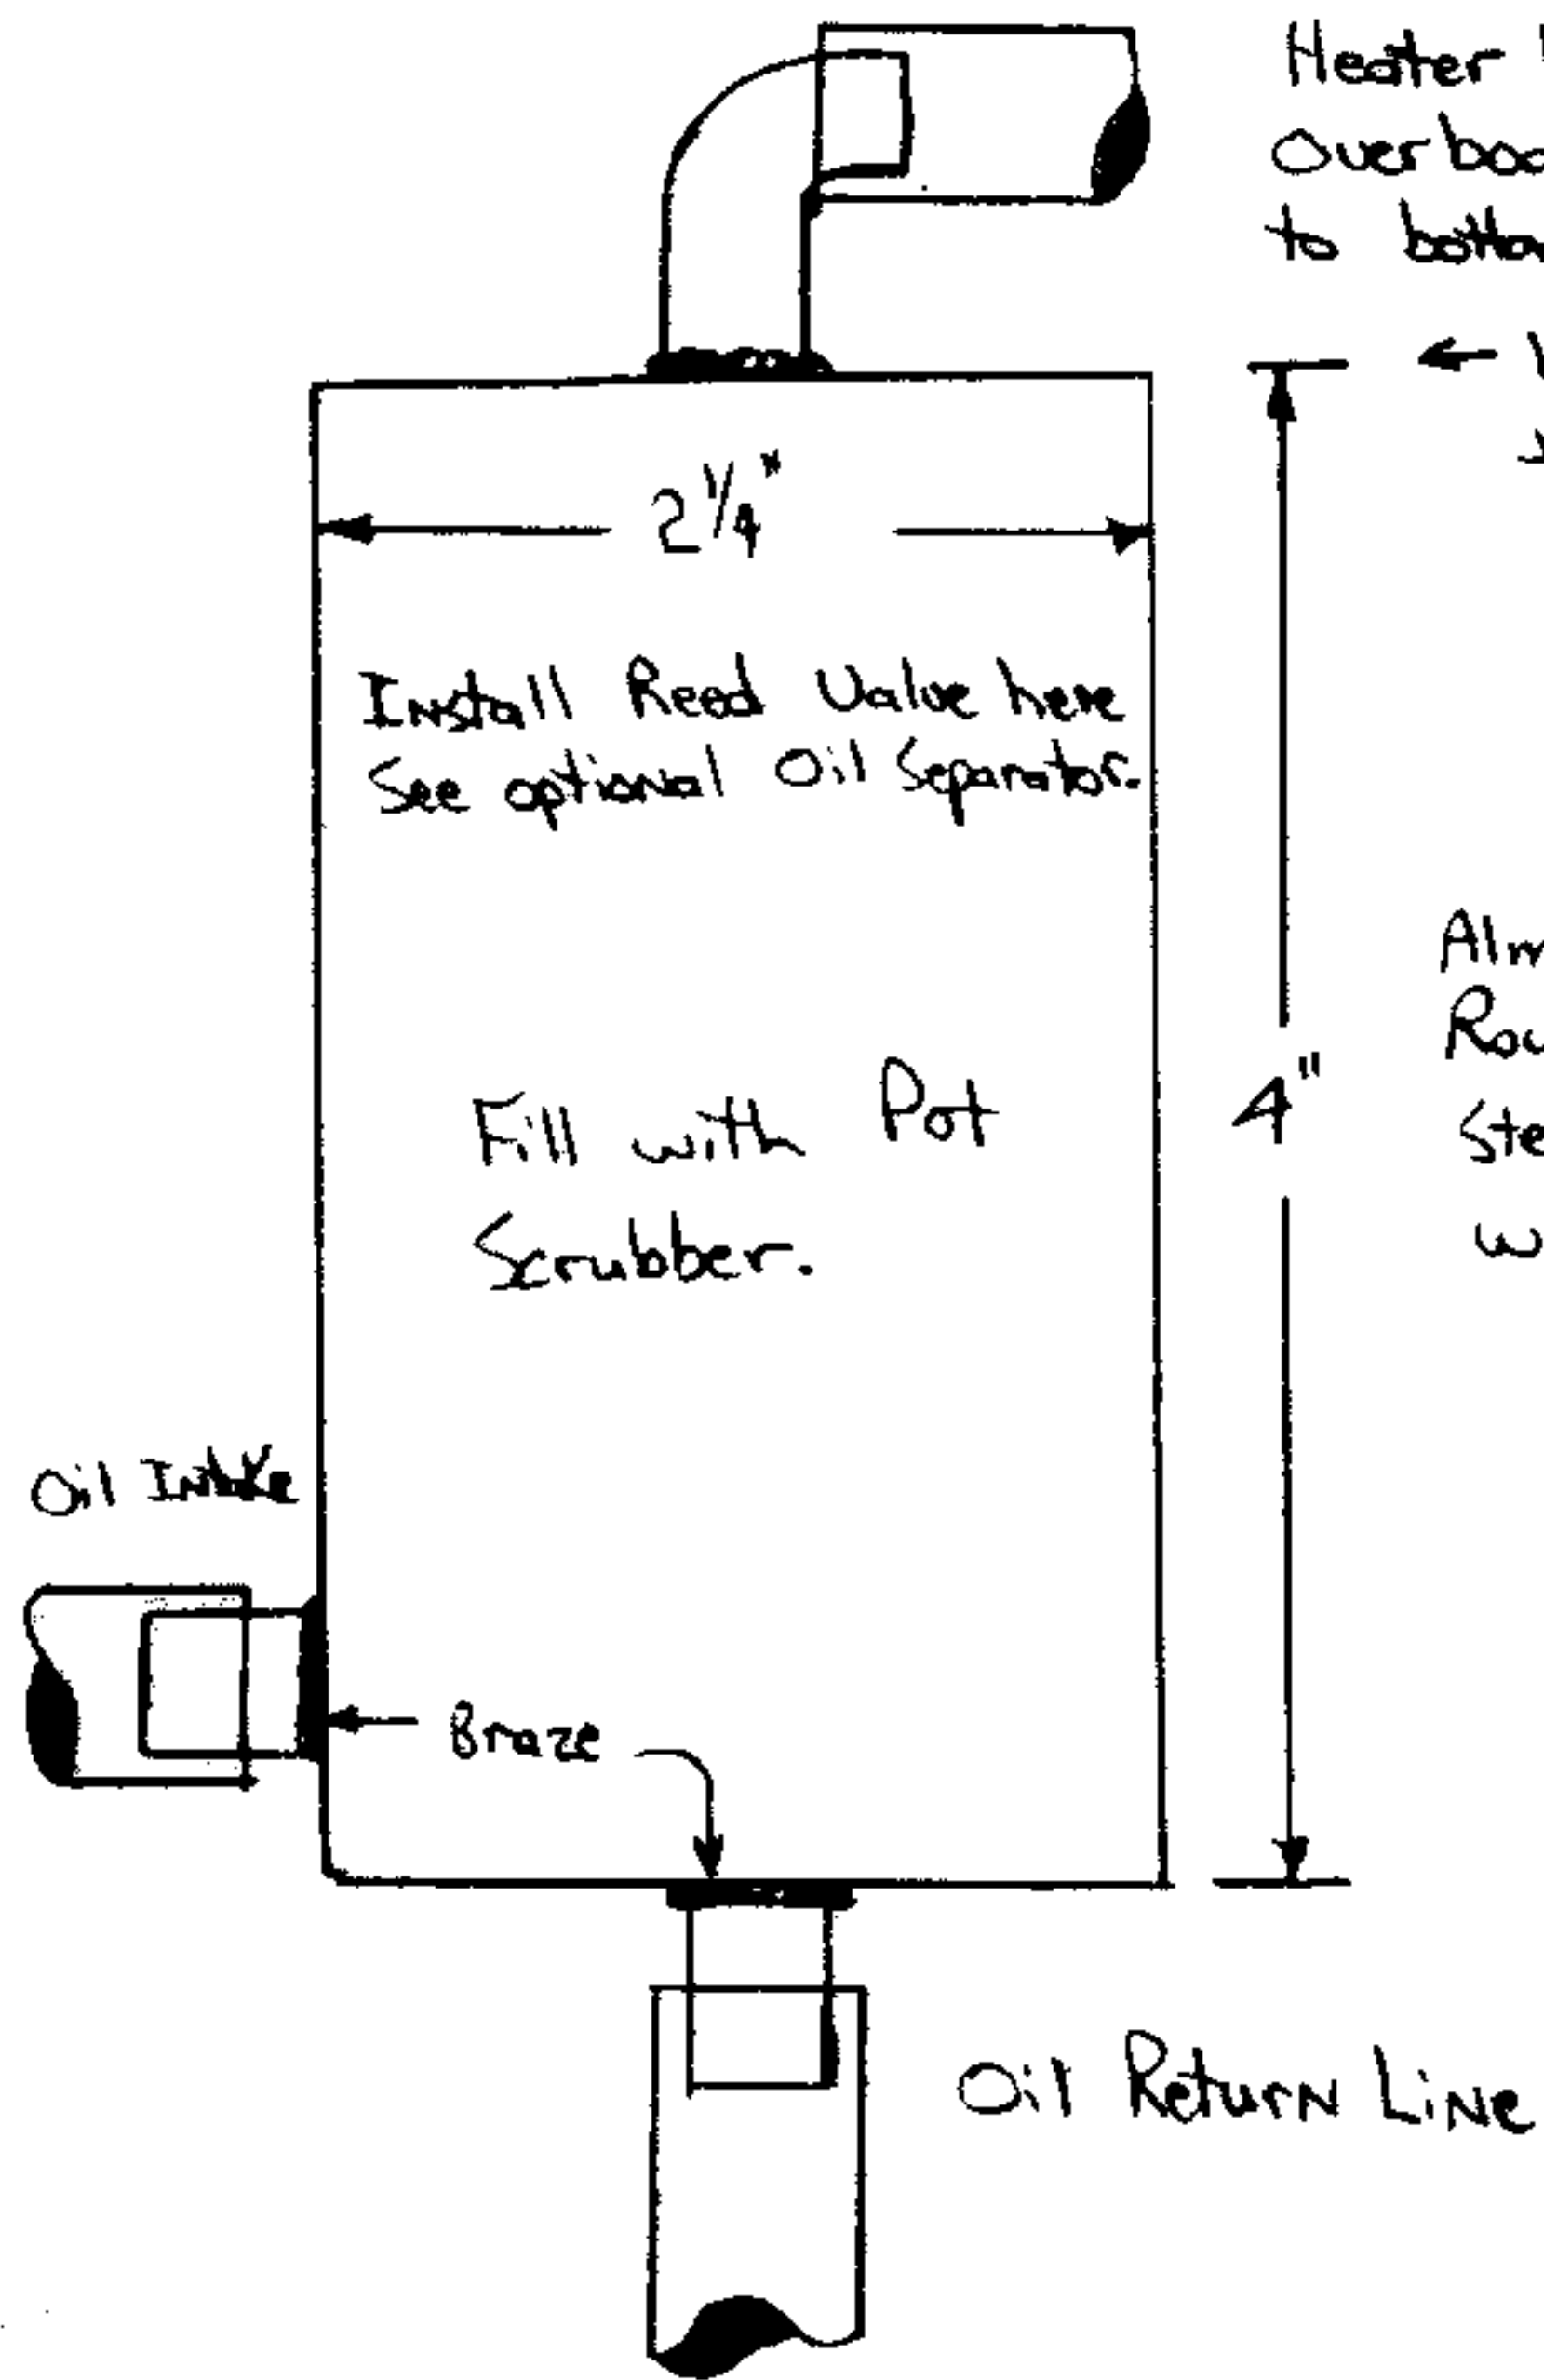 Heater
Overboa
to botto
2 1/4"
Install Reed Valve here
See optional Oil Separator.
Alm
Rou
4"
Fill with Pot
Ste
Scrubber.
Oil Intake
Braze
Oil Return Line